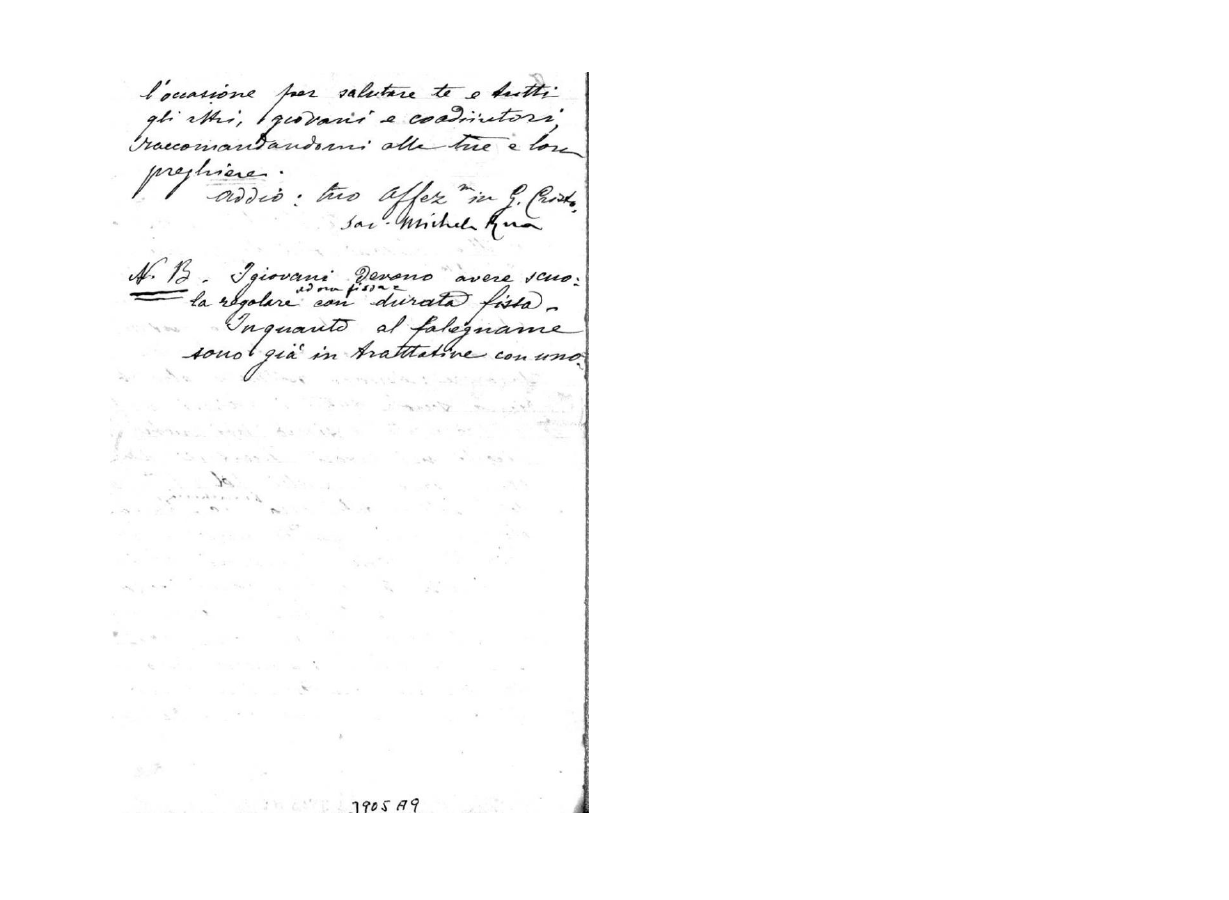 l'occasione per salutare te e tutti
gli altri, giovani e coadiutori,
raccomandandomi alle tue e loro
preghiere.
addio: tuo affez.m in G. Cristo.
Sac. Michele Rua
N. B. I giovani devono avere scuo:
ed ora fissa e
la regolare con durata fissa.
In quanto al falegname
sono già in trattative con uno.
3905 A9